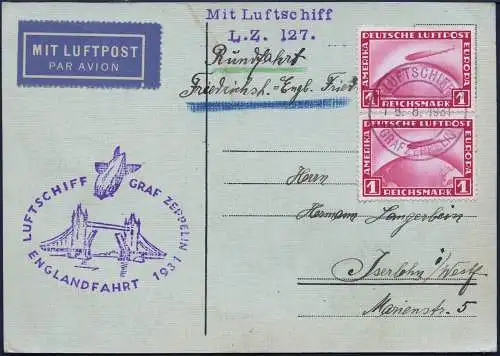 MIT LUFTPOST
PAR AVION
Mit Luftschiff
L.Z. 127.
Rundfahrt
Friedrichsh.-Engl. Fried.
DEUTSCHE LUFTPOST
AMERIKA
EUROPA
1 REICHSMARK 1
LUFTSCHIFF
8.1931
GRAF ZEPPELIN
DEUTSCHE LUFTPOST
AMERIKA
EUROPA
1 REICHSMARK 1
LUFTSCHIFF GRAF ZEPPELIN
ENGLANDFAHRT 1931
Herrn
Hermann Langerbein
Iserlohn i/Westf
Marienstr. 5